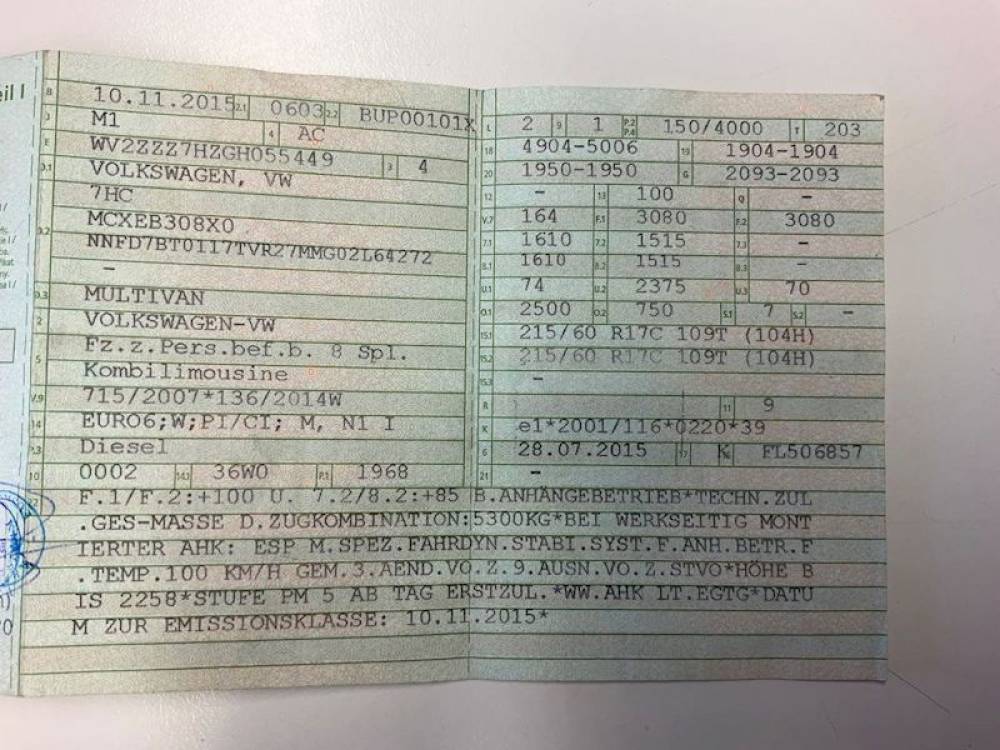 eil I
B 10.11.2015 2.1 0603 2.2 BUP00101X
J M1 4 AC
E WV2ZZZ7HZGH055449 3 4
D.1 VOLKSWAGEN, VW
7HC
D.2 MCXEB308X0
NNFD7BT0117TVR27MMG02L64272
–
D.3 MULTIVAN
2 VOLKSWAGEN-VW
5 Fz.z.Pers.bef.b. 8 Spl.
Kombilimousine
V.9 715/2007*136/2014W
14 EURO6;W;PI/CI; M, N1 I
P.3 Diesel
10 0002 14.1 36W0 P.1 1968
L 2 9 1 P.2 P.4 150/4000 T 203
18 4904-5006 19 1904-1904
20 1950-1950 G 2093-2093
12 – 13 100 Q –
V.7 164 F.1 3080 F.2 3080
7.1 1610 7.2 1515 7.3 –
8.1 1610 8.2 1515 8.3 –
U.1 74 U.2 2375 U.3 70
O.1 2500 O.2 750 S.1 7 S.2 –
15.1 215/60 R17C 109T (104H)
15.2 215/60 R17C 109T (104H)
15.3 –
R 11 9
K e1*2001/116*0220*39
6 28.07.2015 17 K FL506857
21 –
22 F.1/F.2:+100 U. 7.2/8.2:+85 B.ANHÄNGEBETRIEB*TECHN.ZUL
.GES-MASSE D.ZUGKOMBINATION:5300KG*BEI WERKSEITIG MONT
IERTER AHK: ESP M.SPEZ.FAHRDYN.STABI.SYST.F.ANH.BETR.F
.TEMP.100 KM/H GEM.3.AEND.VO.Z.9.AUSN.VO.Z.STVO*HÖHE B
IS 2258*STUFE PM 5 AB TAG ERSTZUL.*WW.AHK LT.EGTG*DATU
M ZUR EMISSIONSKLASSE: 10.11.2015*